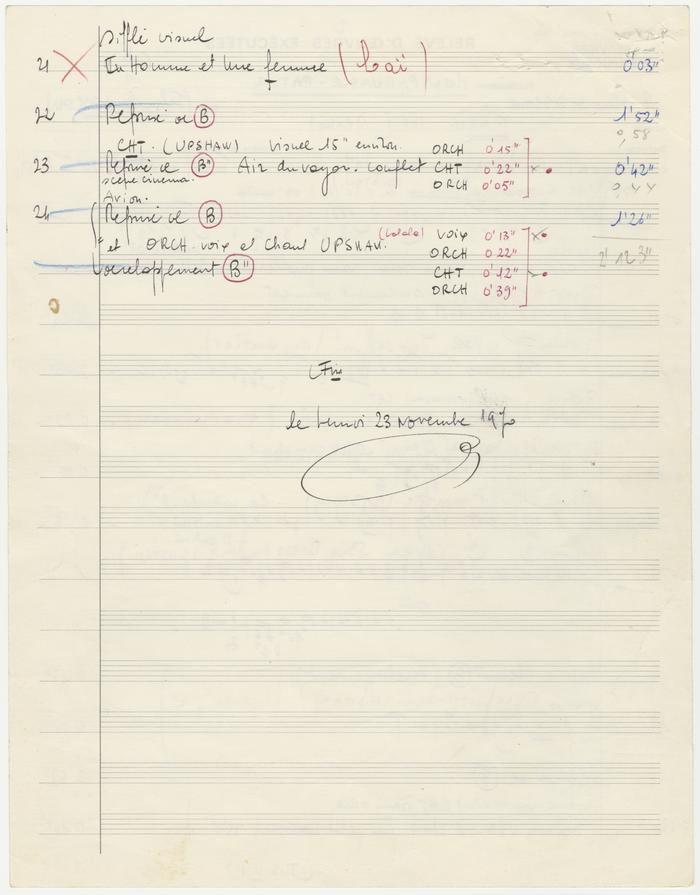 Sifflé visuel
21 Un Homme et Une femme (Laï) 0'03"
22 Reprise de B 1'52"
0,58
CHT. (UPSHAW) visuel 15" environ. ORCH 0'15"
23 Reprise de B" Air du voyou. Couplet CHT 0'22" x • 0'42"
scène cinema. ORCH 0'05" 0,44
Avion.
24 Reprise de B 1'26"
(Lalala) Voix 0'13" x •
et ORCH. voix et chant UPSHAW. ORCH 0'22" 2' 12 3"
Développement B" CHT 0'12" •
ORCH 0'39"
Fin
le Lundi 23 Novembre 1970